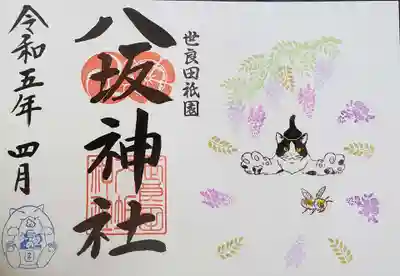 世良田祇園
八坂神社
令和五年 四月